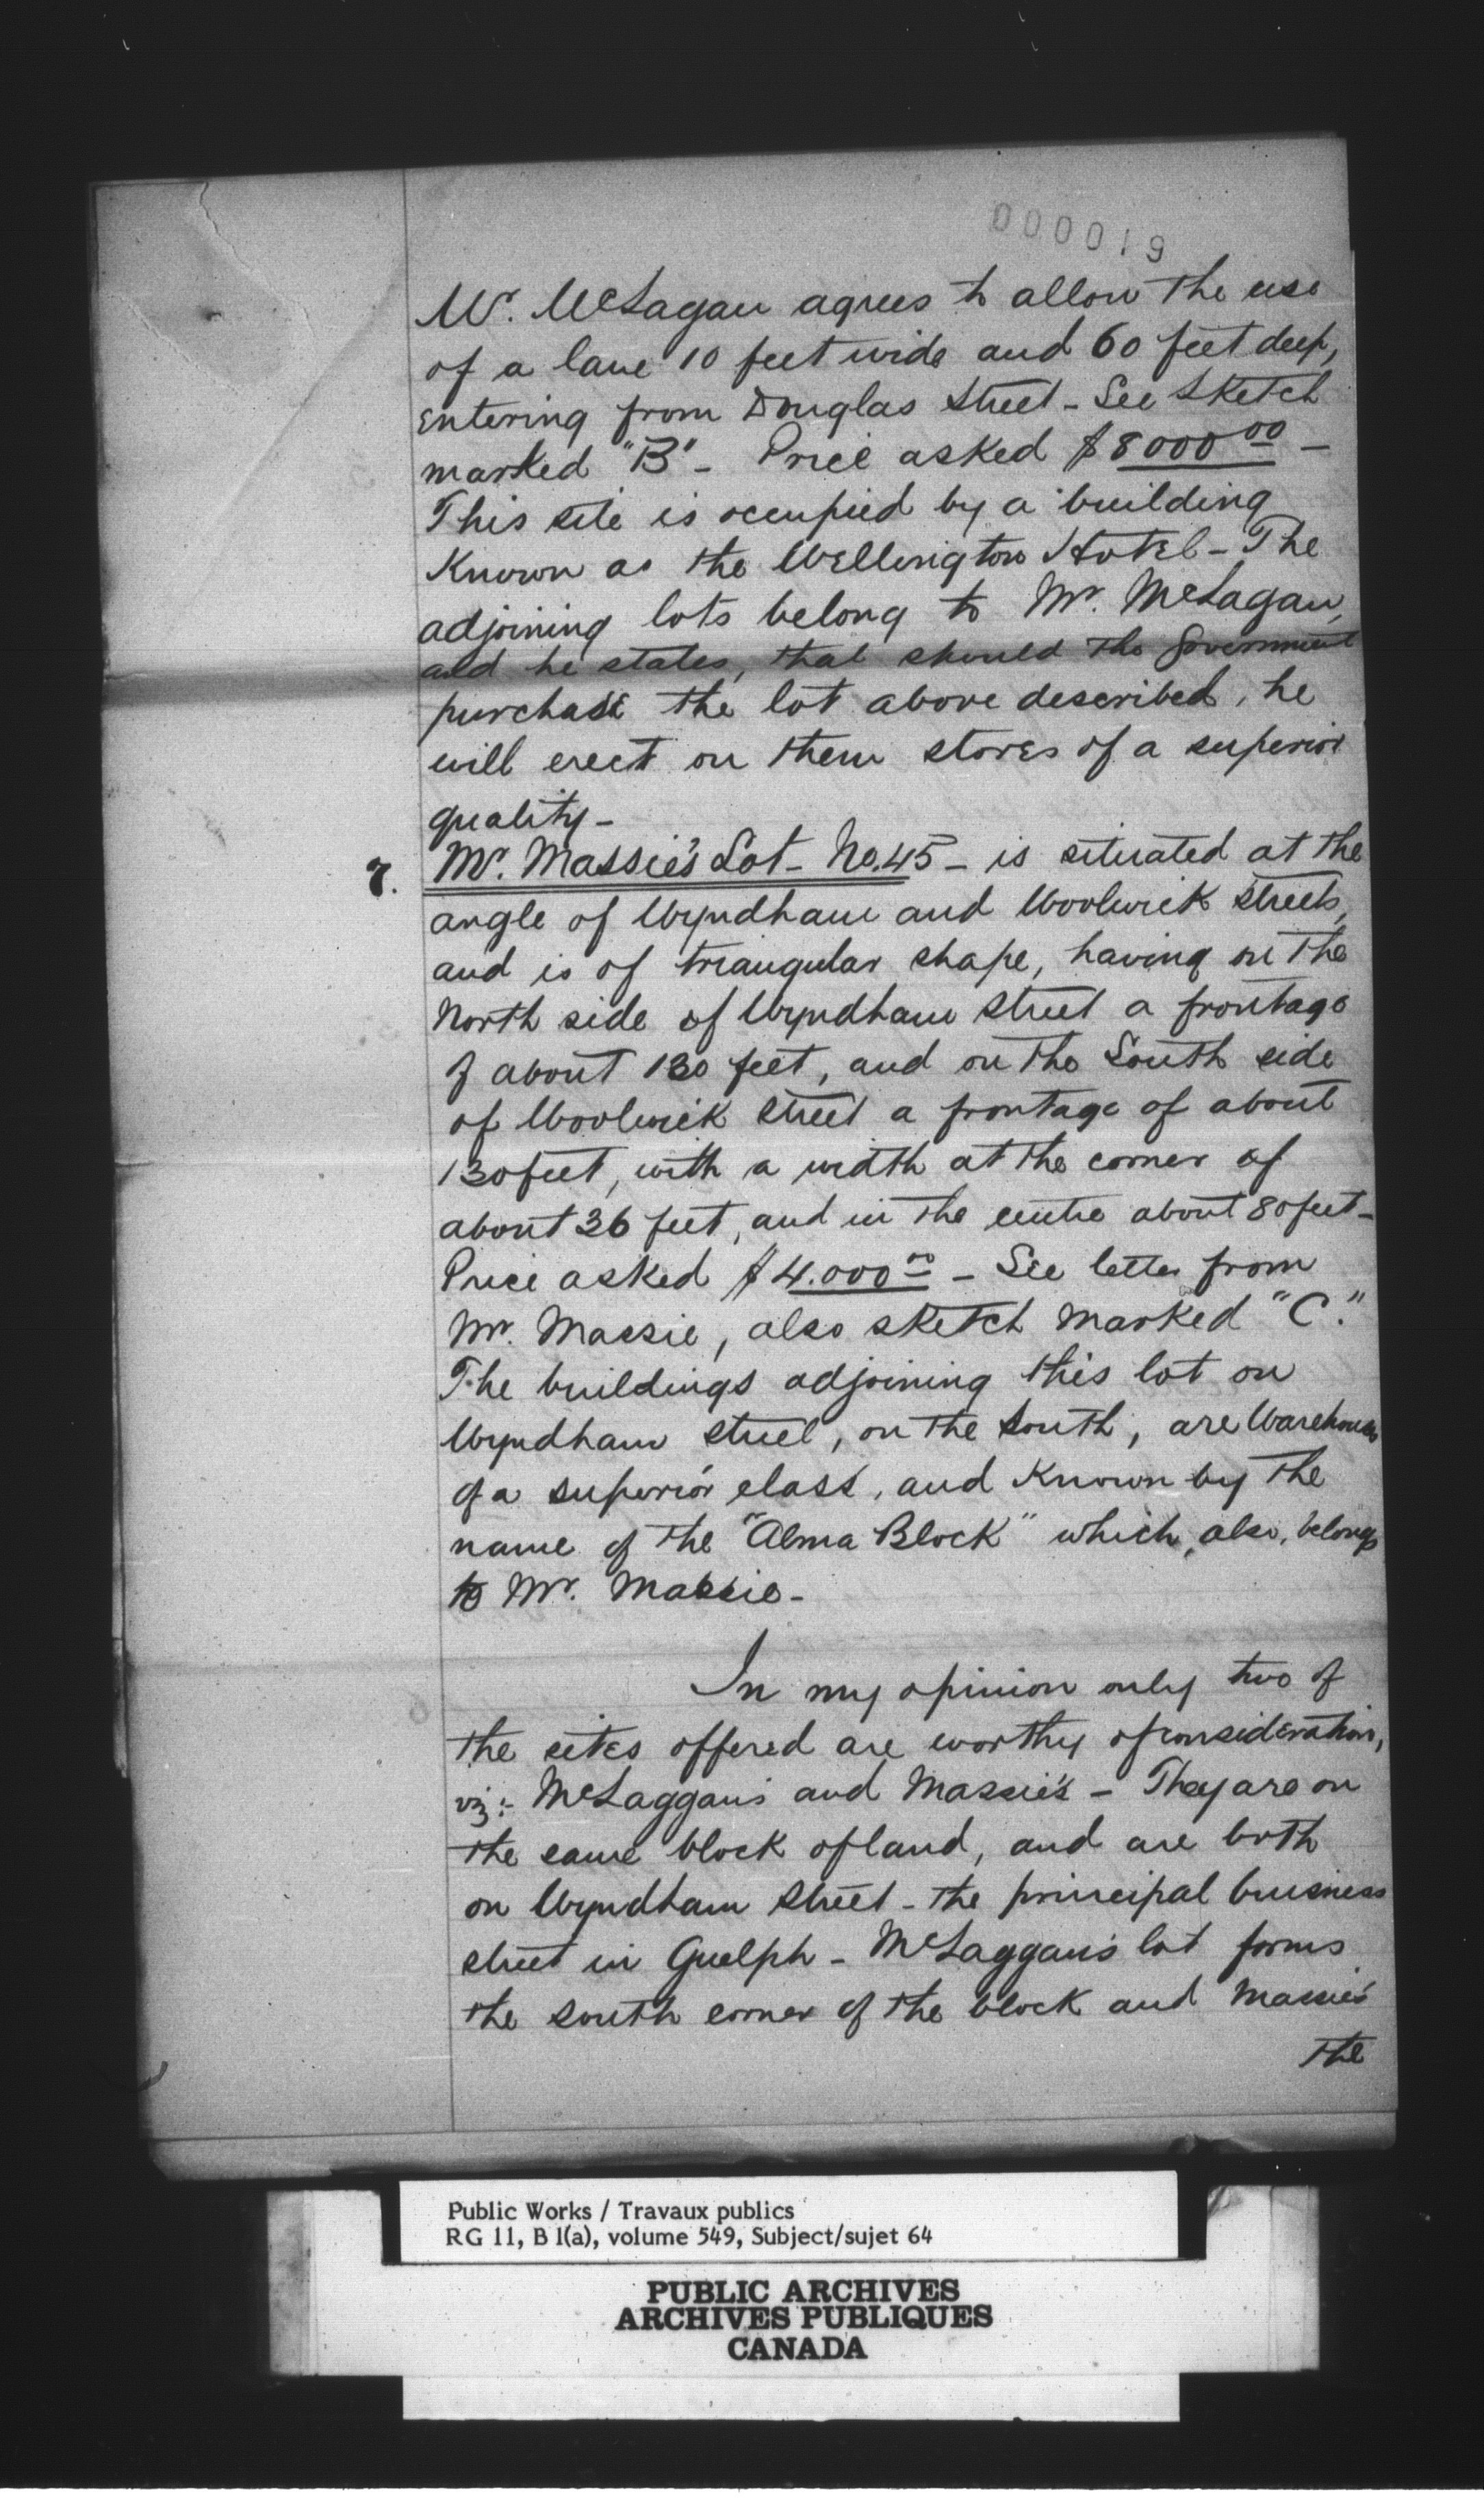 000019
Mr. McLagan agrees to allow the use
of a lane 10 feet wide and 60 feet deep,
entering from Douglas Street - See Sketch
marked "B" - Price asked $8000 00 -
This site is occupied by a building
Known as the Wellington Hotel - The
adjoining lots belong to Mr. McLagan,
and he states, that should the Government
purchase the lot above described, he
will erect on them stores of a superior
quality -
7. Mr. Massie's Lot - No. 45 - is situated at the
angle of Wyndham and Woolwick Streets,
and is of triangular shape, having on the
North side of Wyndham Street a frontage
of about 130 feet, and on the South side
of Woolwick Street a frontage of about
130 feet, with a width at the corner of
about 36 feet, and in the centre about 80 feet -
Price asked $4.000 00 - See letter from
Mr. Massie, also sketch marked "C."
The buildings adjoining this lot on
Wyndham Street, on the South, are Warehouses
of a superior class, and Known by the
name of the "Alma Block" which, also, belongs
to Mr. Massie -
In my opinion only two of
the sites offered are worthy of consideration,
viz:- McLaggan's and Massie's - They are on
the same block of land, and are both
on Wyndham Street - the principal business
street in Guelph - McLaggan's lot forms
the south corner of the block and Massie's
the
Public Works / Travaux publics
RG 11, B 1(a), volume 549, Subject/sujet 64
PUBLIC ARCHIVES
ARCHIVES PUBLIQUES
CANADA